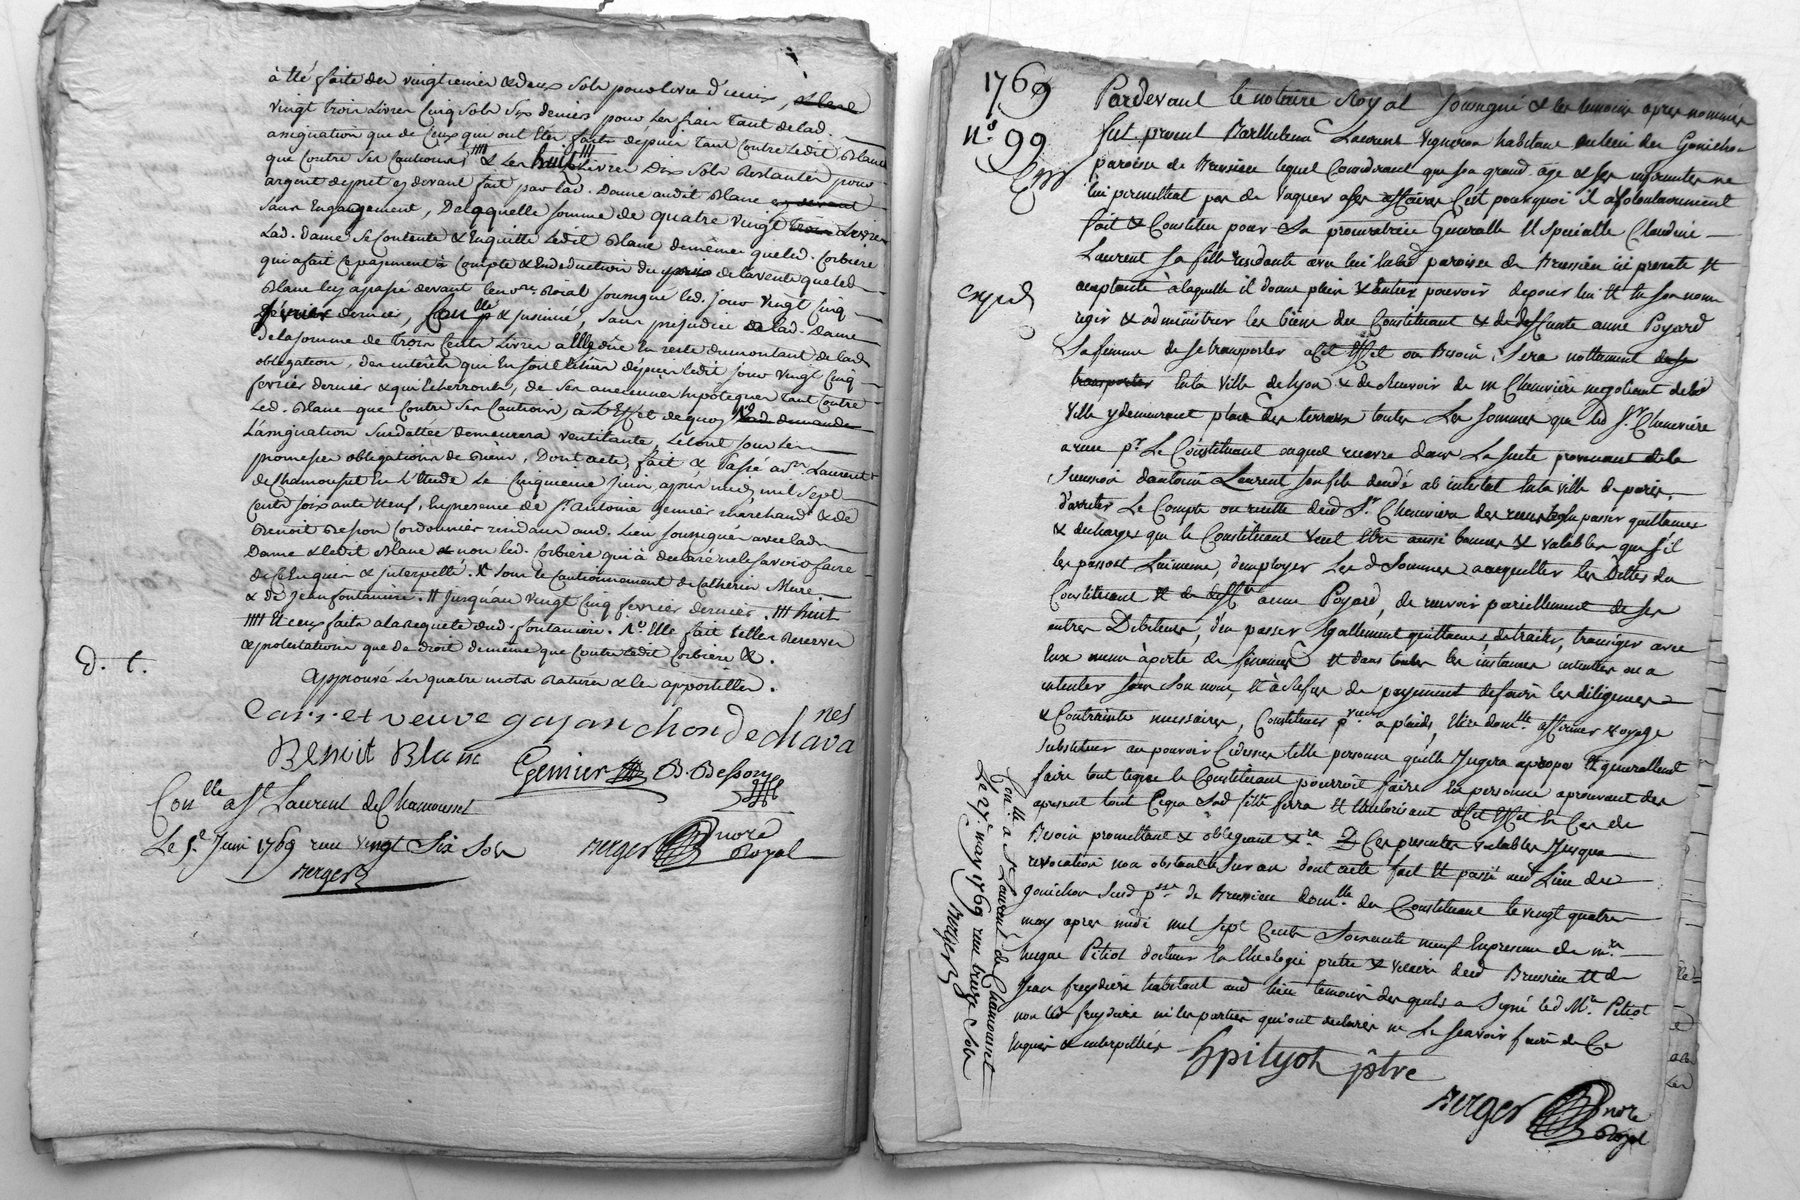 à été faite des vingtiemes & deux sols pour livre d'iceux,
vingt trois Livres Cinq sols Six deniers pour les frais tant de lad.
assignation que de Ceux qui ont Eté faits depuis tant Contre ledit Blanc
que Contre Ses Cautions & Les huit Livres Dix Sols Restantes pour
argent depret cy devant fait par lad. Dame audit Blanc cy devant
Sans Engagement, De laquelle somme de quatre vingt trois Livres
Lad. dame Se Contente & En quitte Ledit Blanc de même que led. Corbiere
qui a fait Ce payement à Compte & En deduction du prix de la vente que led
Blanc luy a passé devant le nore Roial soussigné led. jour vingt Cinq
fevrier dernier, Conllé & insinué, Sans prejudice de lad. Dame
de la somme de Trois Cents Livres a Elle düe En reste du montant de lad
obligation, des interêts qui En sont Echus depuis ledit jour vingt Cinq
fevrier dernier & qui Echerront, de Ses anciennes hypoteques tant Contre
Led. Blanc que Contre Ses Cautions, à L'Effet de quoy lad demande
L'assignation Susdattée demeurera ventilante, Le tout sous les
promesses obligations de Biens, Dont acte, fait & Passé a St Laurent
de Chamousset En L'Etude Le Cinquieme Juin après midy mil Sept
Cents soixante Neuf, En presence de Sr Antoine Gemier marchand & de
Benoit Besson Cordonnier residans aud. Lieu soussignés avec lad
Dame & ledit Blanc & non led. Corbiere qui à declaré ne le savoir faire
de Ce Enquis & Interpellé. & sous le Cautionnement de Catherin Mure
& de Jean fontaniere. # Jusqu'au vingt Cinq fevrier dernier. ### huit
#### Et ceux faits a la Requete dud. fontaniere. No Elle fait telles Reserves
& protestations que de droit de même que Contre ledit Corbiere &.
D. t.
Approuvé les quatre mots Raturés & les appostilles.
Carret veuve gayan chon de chavanes
Benoit Blanc
Gemier B. Besson
Conllé a St Laurent de Chamousset
Le 5e Juin 1769 reçu vingt Six Sols
Berger
Berger nore Royal
1769
No 99
Exp
expd
Pardevant le notaire Royal soussigné & les temoins après nommés
fut present Barthelemy Laurent Vigneron habitant au lieu du Gonichon
paroisse de Brussieu lequel Considerant que son grand âge & ses infirmites ne
lui permettent pas de Vaquer a ses affaires C'est pourquoi il a Volontairement
fait & Constitué pour Sa procuratrice Generalle Et Specialle Claudine
Laurent Sa fille residante avec lui lad paroisse de Brussieu ici presente Et
acceptante à laquelle il donne plein & Entier pouvoir de pour lui Et En son nom
regir & administrer les biens du Constituant & de deffunte anne Poyard
Sa femme de se transporter a Cet Effet ou Besoin Sera nottament de se
transporter En la Ville de Lyon & de recevoir de m Chauviere negotiant de lad
Ville y demeurant place des terreaux toutes Les Sommes que led Sr. Chauviere
a reçu pr. Le Constituant ou quil recevra dans La Suite provenant de la
Succession d'antoine Laurent son fils decedé ab intestat En la ville de paris,
d'arreter Le Compte ou recette dud Sr Chauviere des reçus En passer quittances
& decharges que le Constituant veut Etre aussi bonnes & valables que s'il
les passoit Lui meme, d'employer Lesd Sommes a acquitter les Dettes du
Constituant Et de deffte anne Poyard, de recevoir pareillement de ses
autres Debiteurs, d'en passer Egallement quittances, de traiter, transiger avec
Eux meme à perte de finances Et dans toutes les instances intentées ou a
intenter sous Son nom, Et à deffaut de payement de faire les diligences
& Contraintes necessaires, Constituer preur a plaids, Elire domlle affirmer voyage
Substituer au pouvoir Cidessus telle personne qu'elle Jugera apropos Et generallement
faire tout Ce que le Constituant pourroit faire En personne aprouvant des
apresent tout Ce que Sad fille fera Et L'authorisant a Cet Effet En Cas de
Besoin promettant & obligeant &ra Ces presentes valables Jusqua
revocation non obstant le Suran dont acte fait Et passé aud Lieu du
Gonichon Susd psse de Brussieu domlle du Constituant le vingt quatre
may apres midi mil Sept Cents Soixante neuf En presence de mre
hugue Pitiot docteur En theologie pretre & vicaire dud Brussieu Et de
Jean freydiere habitant aud lieu temoins des quels a Signé led Mre Pitiot
non led freydiere ni les parties qui ont declarés ne Le Scavoir faire de Ce
Enquis & interpellés
hpityot ptre
Berger nore Royal
Conllé a St Laurent de Chamousset
Le 27e may 1769 reçu treize Sols
Berger